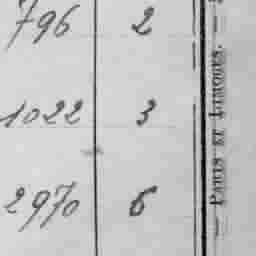 796 2
1022 3
2970 6
— PARIS ET LIMOGES. —